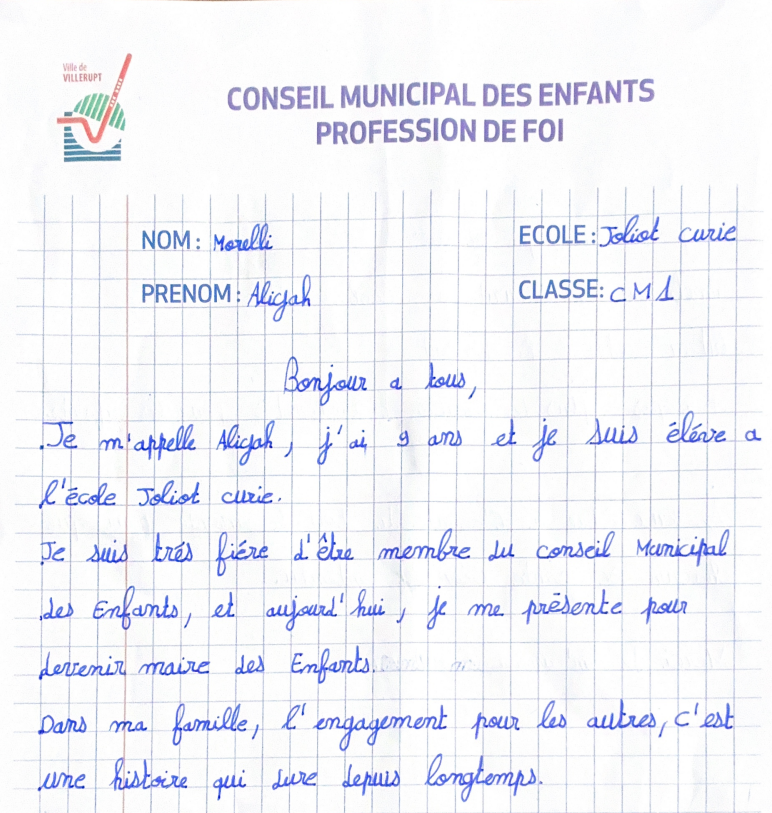 Ville de
VILLERUPT
CONSEIL MUNICIPAL DES ENFANTS
PROFESSION DE FOI
NOM: Morelli
ECOLE: Joliot curie
PRENOM: Aligah
CLASSE: CM1
Bonjour a tous,
Je m'appelle Aligah, j'ai 9 ans et je suis éléve a
l'école Joliot curie.
Je suis trés fiére d'être membre du conseil Municipal
des Enfants, et aujourd'hui, je me présente pour
devenir maire des Enfants.
Dans ma famille, l'engagement pour les autres, c'est
une histoire qui dure depuis longtemps.